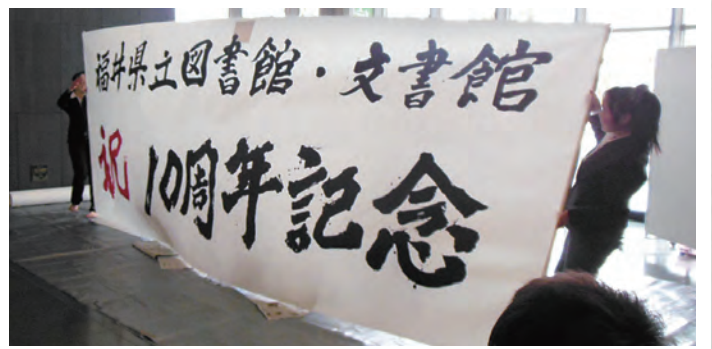 福井県立図書館・文書館
祝 10周年記念